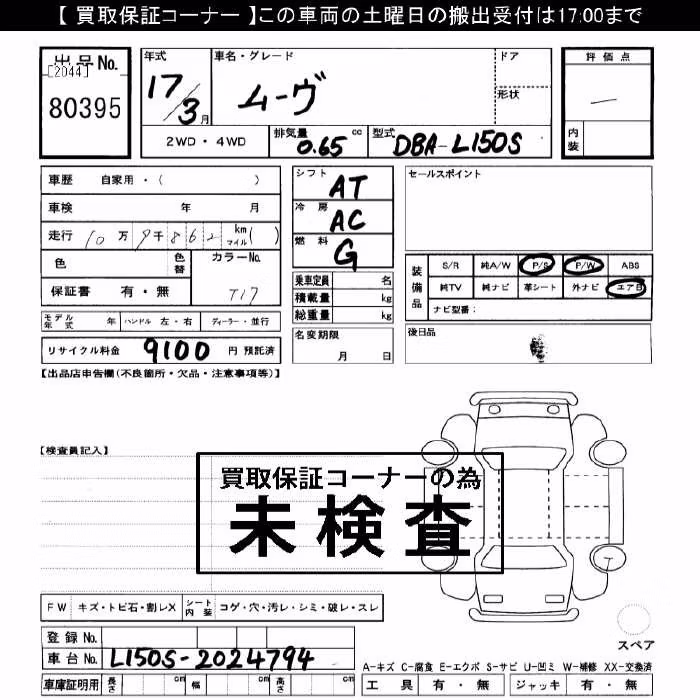 【 買取保証コーナー 】この車両の土曜日の搬出受付は17:00まで
出品No.
[2044]
80395
年式
17/3月
車名・グレード
ムーヴ
ドア
形状
2WD・4WD
排気量 0.65 cc
型式 DBA-L150S
評価点
内装
車歴 自家用・( )
車検 年 月
走行 10万9千862 km マイル( )
色
色替
カラーNo.
T17
保証書 有・無
モデル年式 年 ハンドル 左・右 ディーラー・並行
リサイクル料金 9100 円 預託済
シフト AT
冷房 AC
燃料 G
乗車定員 名
積載量 kg
総重量 kg
名変期限
月 日
セールスポイント
装備品
S/R 純A/W P/S P/W ABS
純TV 純ナビ 革シート 外ナビ エアB
ナビ型番:
後日品
【出品店申告欄(不良箇所・欠品・注意事項等)】
【検査員記入】
買取保証コーナーの為
未検査
FW キズ・トビ石・割レX シート内装 コゲ・穴・汚レ・シミ・破レ・スレ
登録No.
車台No. L150S-2024794
車庫証明用 長さ cm 幅 cm 高さ cm
スペア
A-キズ C-腐食 E-エクボ S-サビ U-凹ミ W-補修 XX-交換済
工具 有・無 ジャッキ 有・無